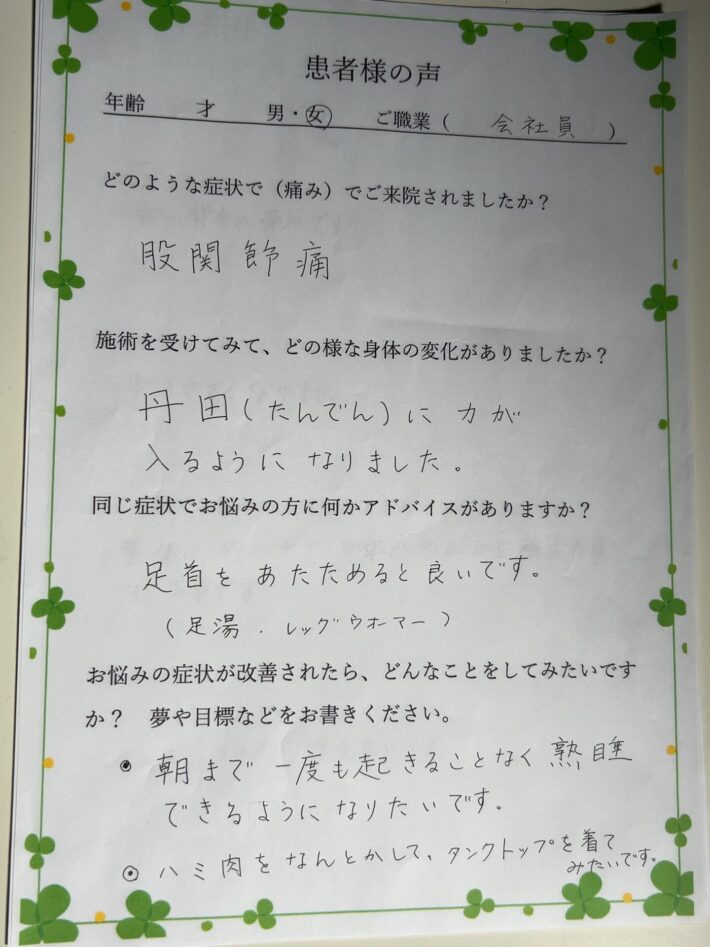 患者様の声
年齢　　才　　男・女　　ご職業（　会社員　）
どのような症状で（痛み）でご来院されましたか？
股関節痛
施術を受けてみて、どの様な身体の変化がありましたか？
丹田(たんでん)に力が
入るようになりました。
同じ症状でお悩みの方に何かアドバイスがありますか？
足首をあたためると良いです。
(足湯．レッグウオーマー)
お悩みの症状が改善されたら、どんなことをしてみたいです
か？　夢や目標などをお書きください。
朝まで一度も起きることなく熟睡
できるようになりたいです。
ハミ肉をなんとかして、タンクトップを着て
みたいです。